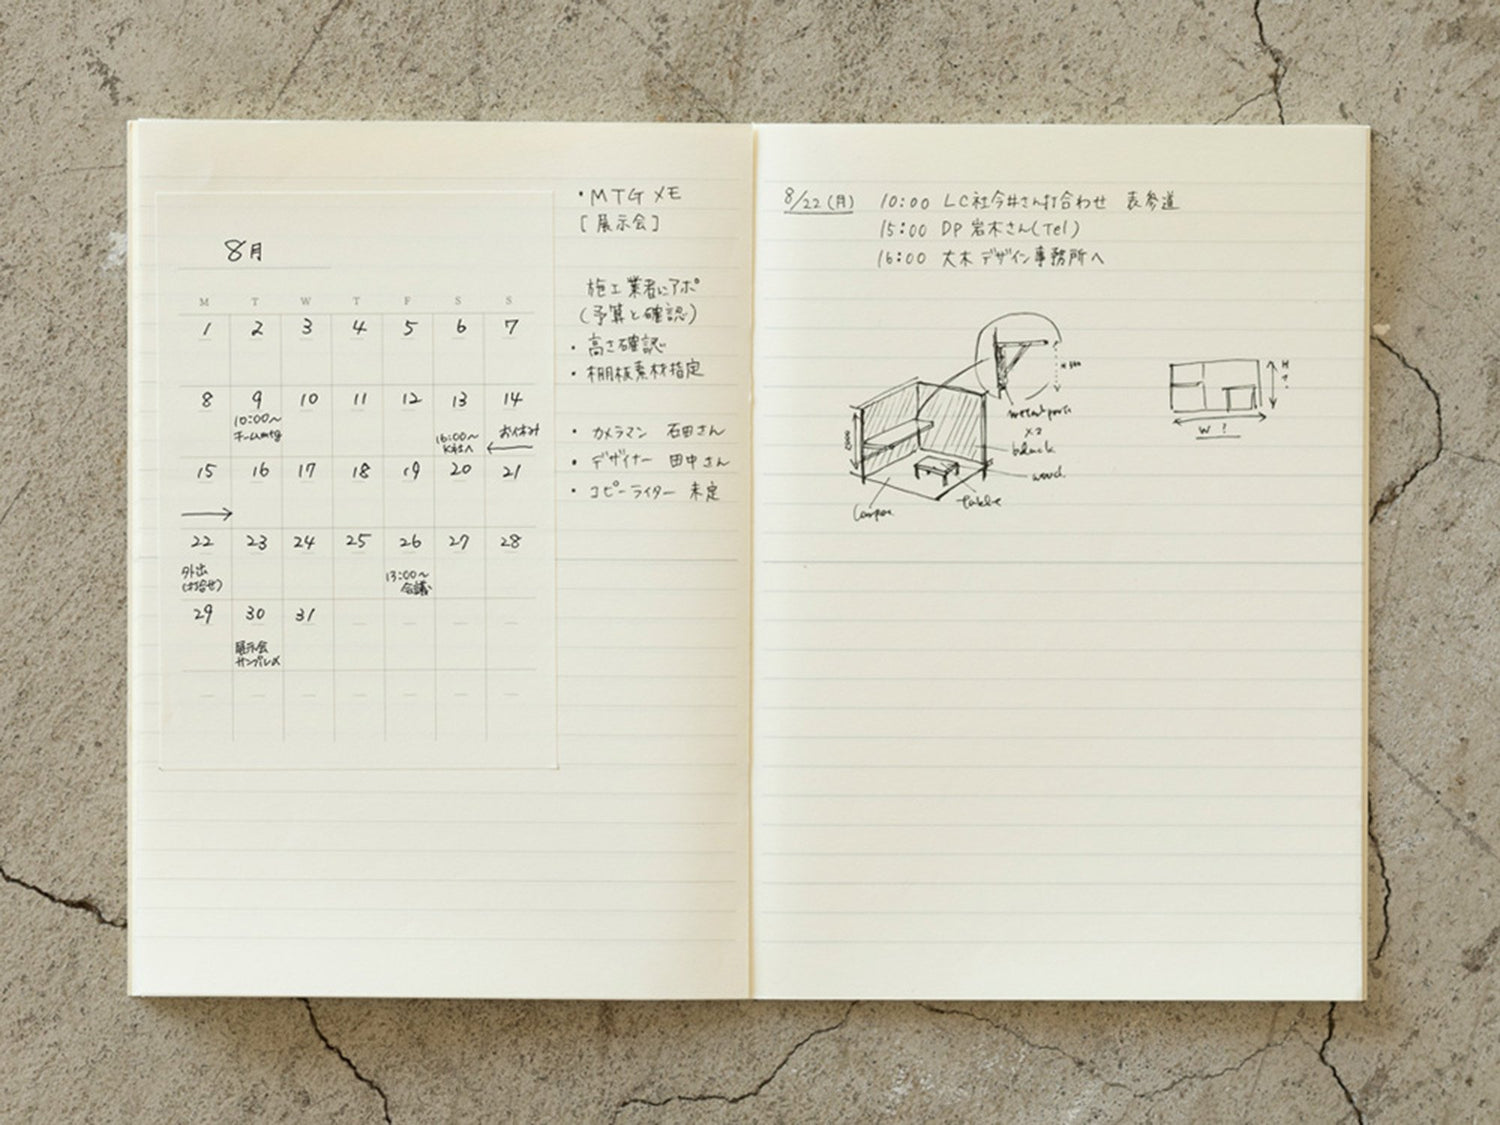 8月
M T W T F S S
1 2 3 4 5 6 7
8 9 10 11 12 13 14
10:00〜
チームmtg
16:00〜
K社へ
お休み
15 16 17 18 19 20 21
22 23 24 25 26 27 28
外出
(打合せ)
13:00〜
会議
29 30 31
展示会
サンプル〆
・MTG メモ
[展示会]
施工業者にアポ
(予算と確認)
・高さ確認
・棚板素材指定
・カメラマン 石田さん
・デザイナー 田中さん
・コピーライター 未定
8/22(月) 10:00 LC社今井さん打合わせ 表参道
15:00 DP 岩木さん(Tel)
16:00 大木デザイン事務所へ
metal
x2
black
wood
table
H?
W?